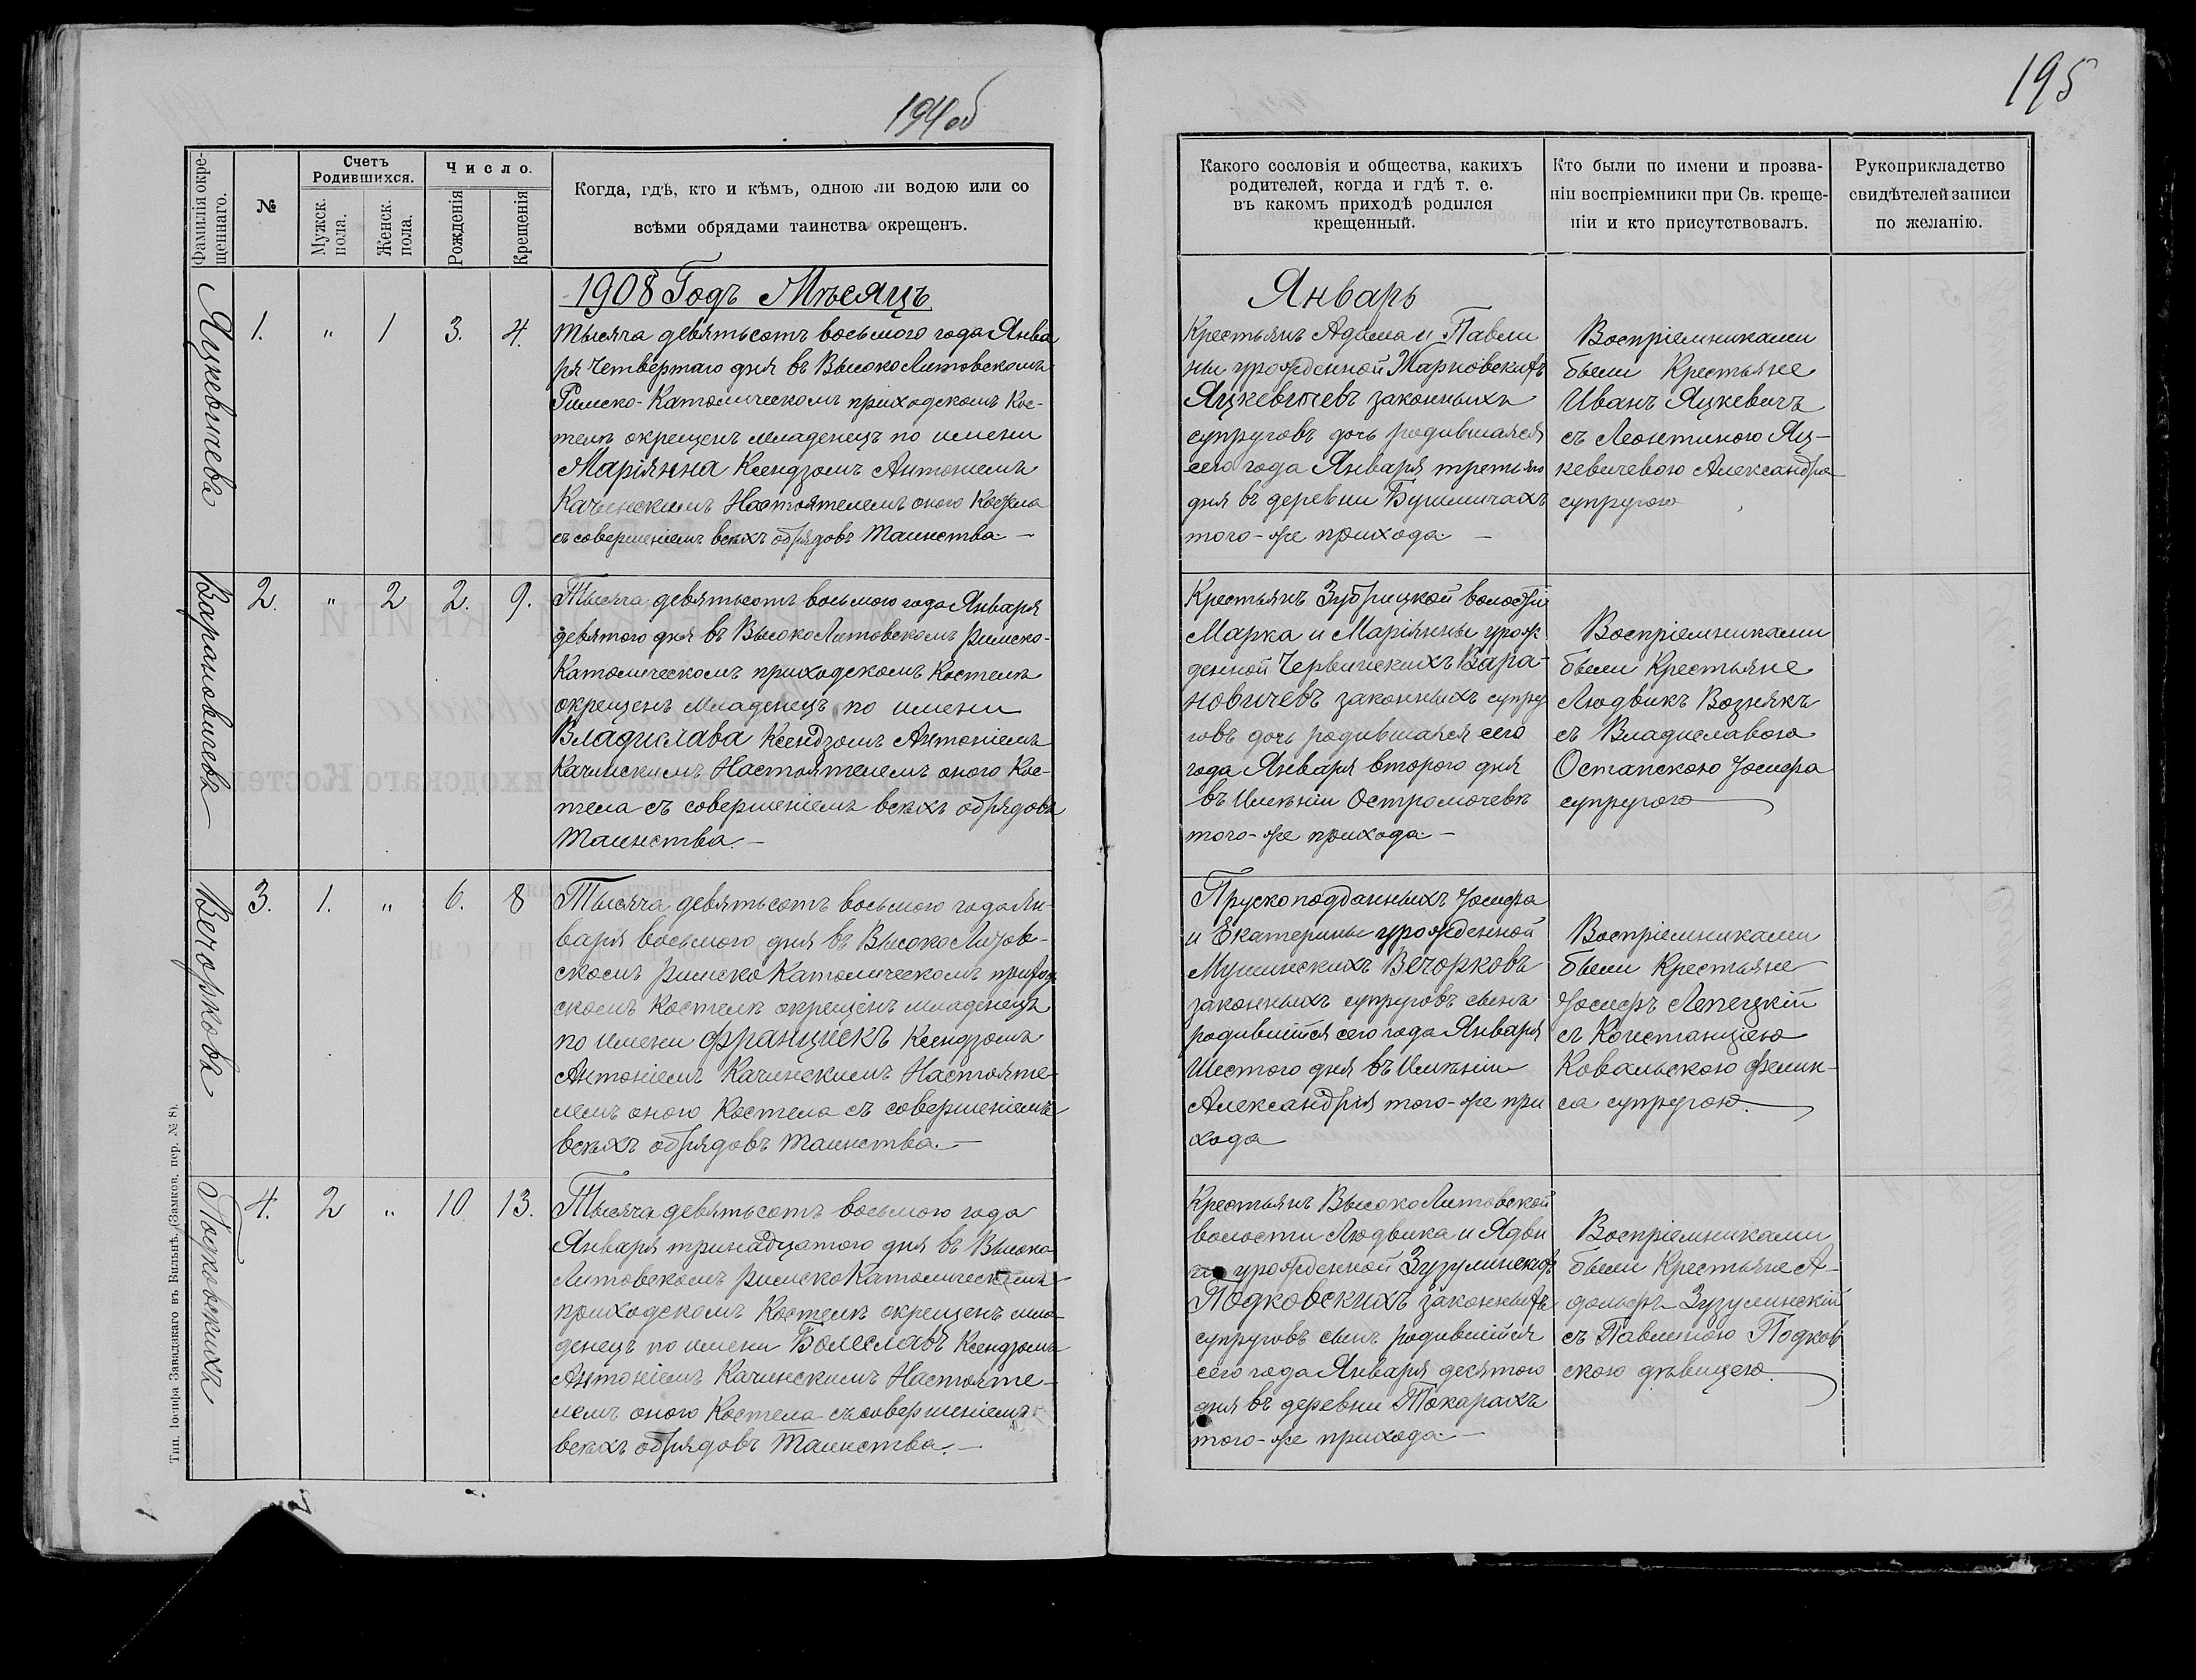 194об
Фамилія окре-
щеннаго.
№
Счетъ
Родившихся.
Мужск.
пола.
Женск.
пола.
Число.
Рожденія
Крещенія
Когда, гдѣ, кто и кѣмъ, одною ли водою или со
всѣми обрядами таинства окрещенъ.
1908 Годъ Мѣсяцъ
Яцкевичева
1. " 1 3. 4.
Тысяча девятьсотъ восьмого года Янва
ря Четвертаго дня въ ВысокоЛитовскомъ
Римско-Католическомъ приходскомъ Кос-
телѣ окрещенъ младенецъ по имени
Маріянна Ксендзомъ Антоніемъ
Качинскимъ Настоятелемъ оного Костела
съ совершеніемъ всѣхъ обрядовъ Таинства. —
Варановичева
2. " 2 2. 9.
Тысяча девятьсотъ восьмого года Января
девятого дня въ ВысокоЛитовскомъ римско-
Католическомъ приходскомъ Костелѣ
окрещенъ младенецъ по имени
Владислава Ксендзомъ Антоніемъ
Качинскимъ Настоятелемъ оного Кос-
тела съ совершеніемъ всѣхъ обрядовъ
Таинства. —
Вечоркова
3. 1. " 6. 8
Тысяча девятьсотъ восьмого года Ян-
варя восьмого дня въ ВысокоЛитов-
скомъ римскоКатолическомъ приход
скомъ Костелѣ окрещенъ младенецъ
по имени Францискъ Ксендзомъ
Антоніемъ Качинскимъ Настояте-
лемъ оного Костела съ совершеніемъ
всѣхъ обрядовъ Таинства. —
Подковскихъ
4. 2 " 10 13.
Тысяча девятьсотъ восьмого года
Января тринадцатого дня въ Высоко
Литовскомъ римскоКатолическомъ
приходскомъ Костелѣ окрещенъ мла-
денецъ по имени Болеславъ Ксендзомъ
Антоніемъ Качинскимъ Настояте-
лемъ оного Костела съ совершеніемъ
всѣхъ обрядовъ Таинства. —
Тип. Іосифа Завадзкаго въ Вильнѣ, (Замков. пер. № 8).
195
Какого сословія и общества, какихъ
родителей, когда и гдѣ т. е.
въ какомъ приходѣ родился
крещенный.
Кто были по имени и прозва-
ніи воспріемники при Св. креще-
ніи и кто присутствовалъ.
Рукоприкладство
свидѣтелей записи
по желанію.
Январь
Крестьянъ Адама и Павли
ны урожденной Жарновскихъ
Яцкевичевъ законныхъ
супруговъ дочь родившаяся
сего года Января третьяго
дня въ деревни
того-же прихода —
Воспріемниками
были Крестьяне
Иванъ Яцкевичъ
съ Леонтиною Яц-
кевичевою Александра
супругою
Крестьянъ Зубрицкой волости
Марка и Маріянны урож
денной Червинскихъ Вара-
новичевъ законныхъ супру
говъ дочь родившаяся сего
года Января второго дня
въ Имѣніи Остромочевѣ
того-же прихода. —
Воспріемниками
были Крестьяне
Людвикъ Вознякъ
съ Владиславою
Остапскою Іосифа
супругою
Прускоподданныхъ Іосифа
и Екатерины урожденной
Мушинскихъ Вечорковъ
законныхъ супруговъ сынъ
родившійся сего года Января
Шестого дня въ Имѣніи
Александрія того-же при
хода
Воспріемниками
были Крестьяне
Іосифъ Лепецкій
съ Констанціею
Ковальскою Фелик-
са супругою.
Крестьянъ ВысокоЛитовской
волости Людвика и Ядви
ги урожденной Зузулинскихъ
Подковскихъ законныхъ
супруговъ сынъ родившійся
сего года Января десятого
дня въ деревни Токарахъ
того-же прихода —
Воспріемниками
были Крестьяне А-
дольфъ Зузулинскій
съ Павлиною Подков
скою дѣвицею.